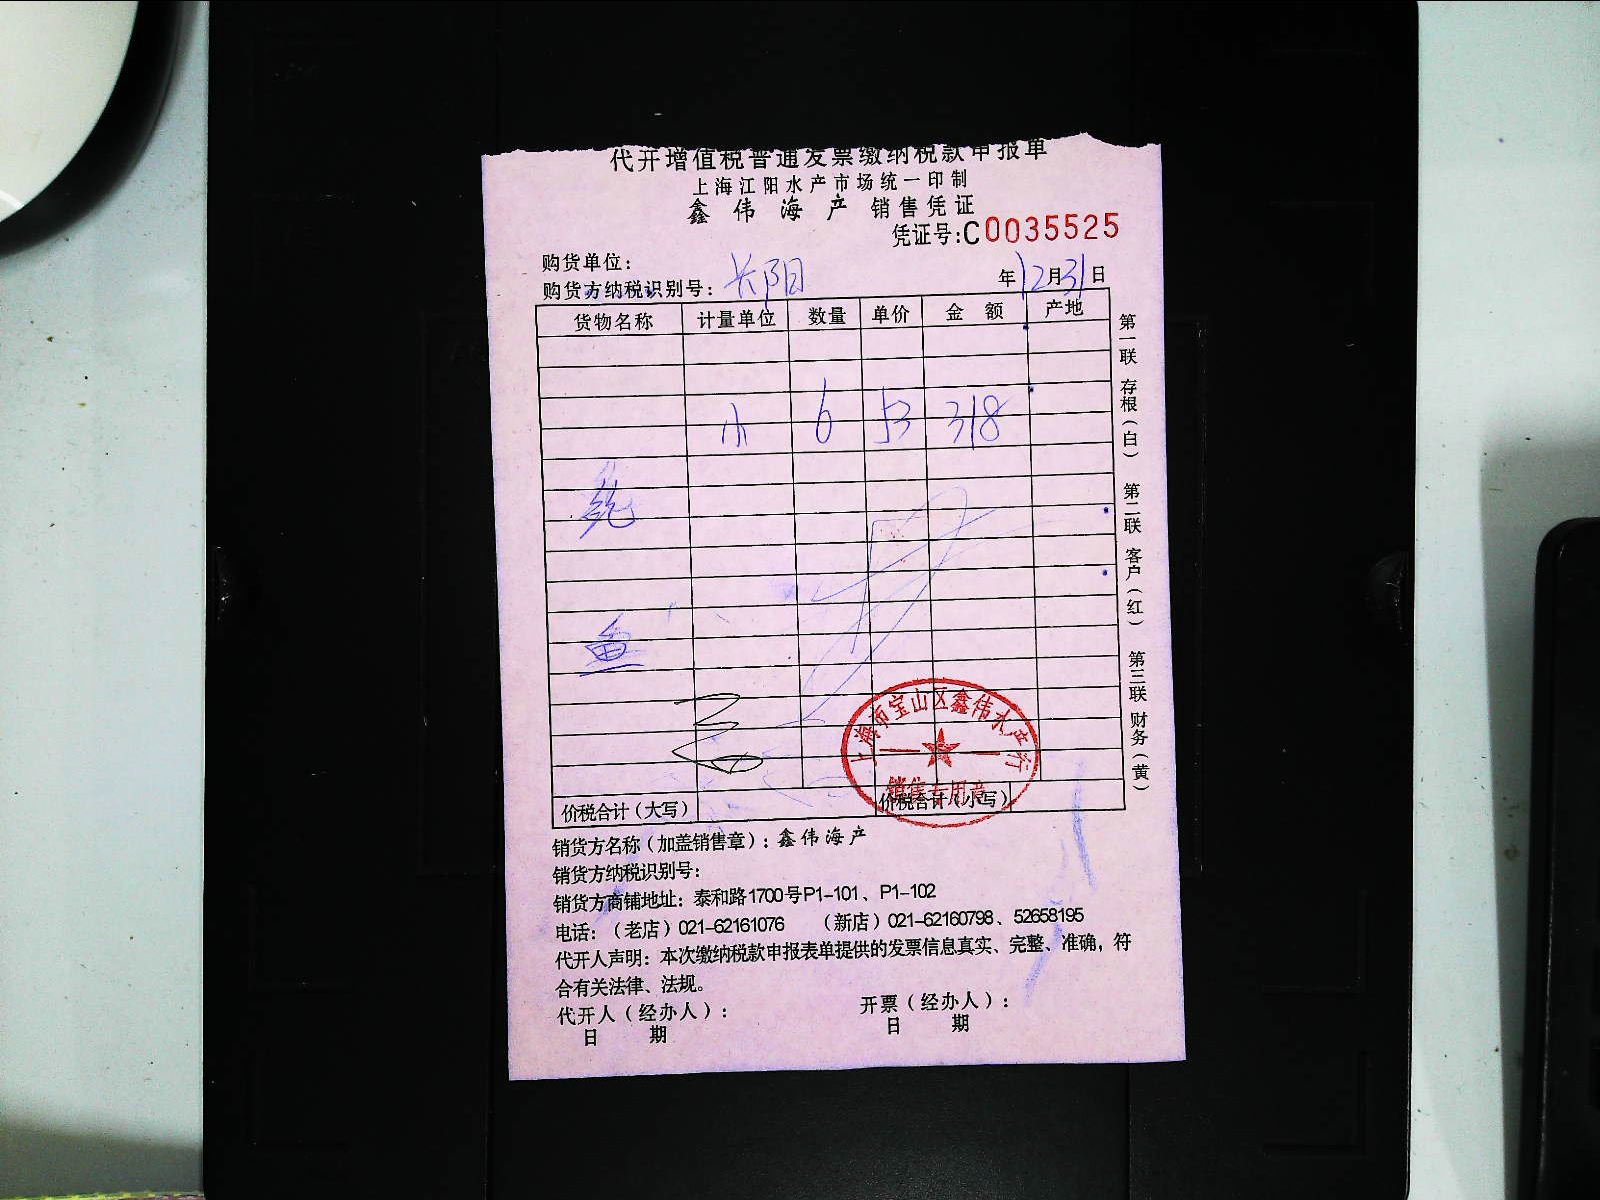 代开增值税普通发票缴纳税款申报单
上海江阳水产市场统一印制
鑫伟海产 销售凭证
凭证号:C0035525
购货单位:
购货方纳税识别号: 长阳 年12月31日
货物名称 计量单位 数量 单价 金额 产地
小 6 53 318
鱼
价税合计(大写) 价税合计(小写)
上海市宝山区鑫伟水产行
销售专用章
第一联 存根(白) 第二联 客户(红) 第三联 财务(黄)
销货方名称(加盖销售章): 鑫伟海产
销货方纳税识别号:
销货方商铺地址: 泰和路1700号P1-101、P1-102
电话:(老店)021-62161076 (新店)021-62160798、52658195
代开人声明: 本次缴纳税款申报表单提供的发票信息真实、完整、准确,符
合有关法律、法规。
代开人(经办人): 开票(经办人):
日期 日期